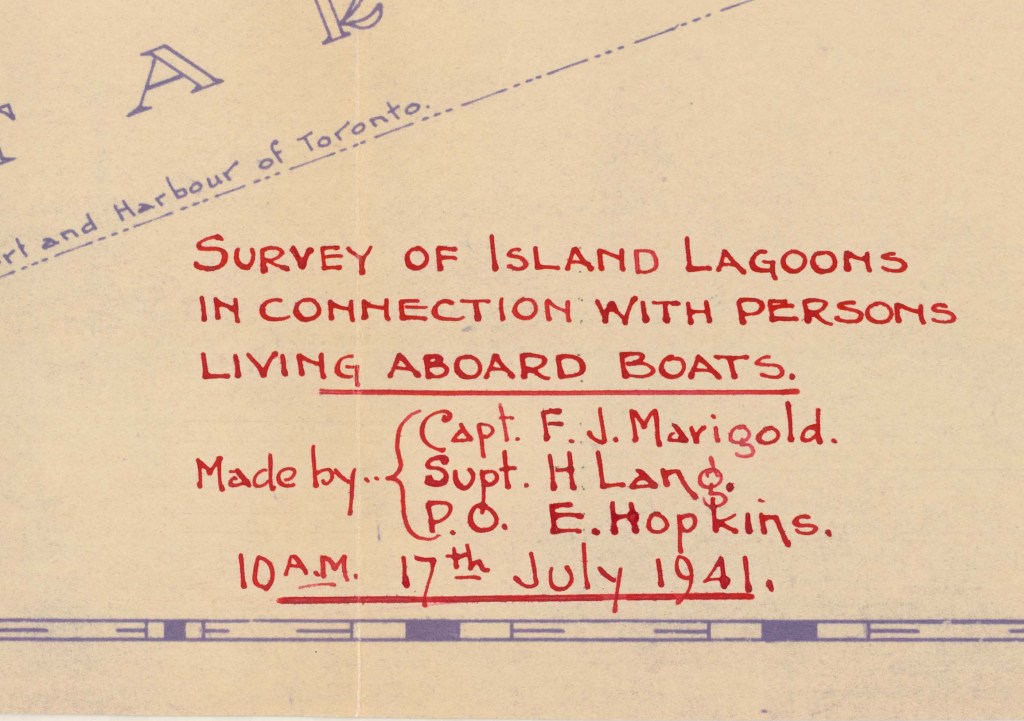 TAR
rt and Harbour of Toronto.
SURVEY OF ISLAND LAGOONS
IN CONNECTION WITH PERSONS
LIVING ABOARD BOATS.
Made by..
Capt. F. J. Marigold.
Supt. H Lang.
P.O. E. Hopkins.
10 A.M. 17th July 1941.